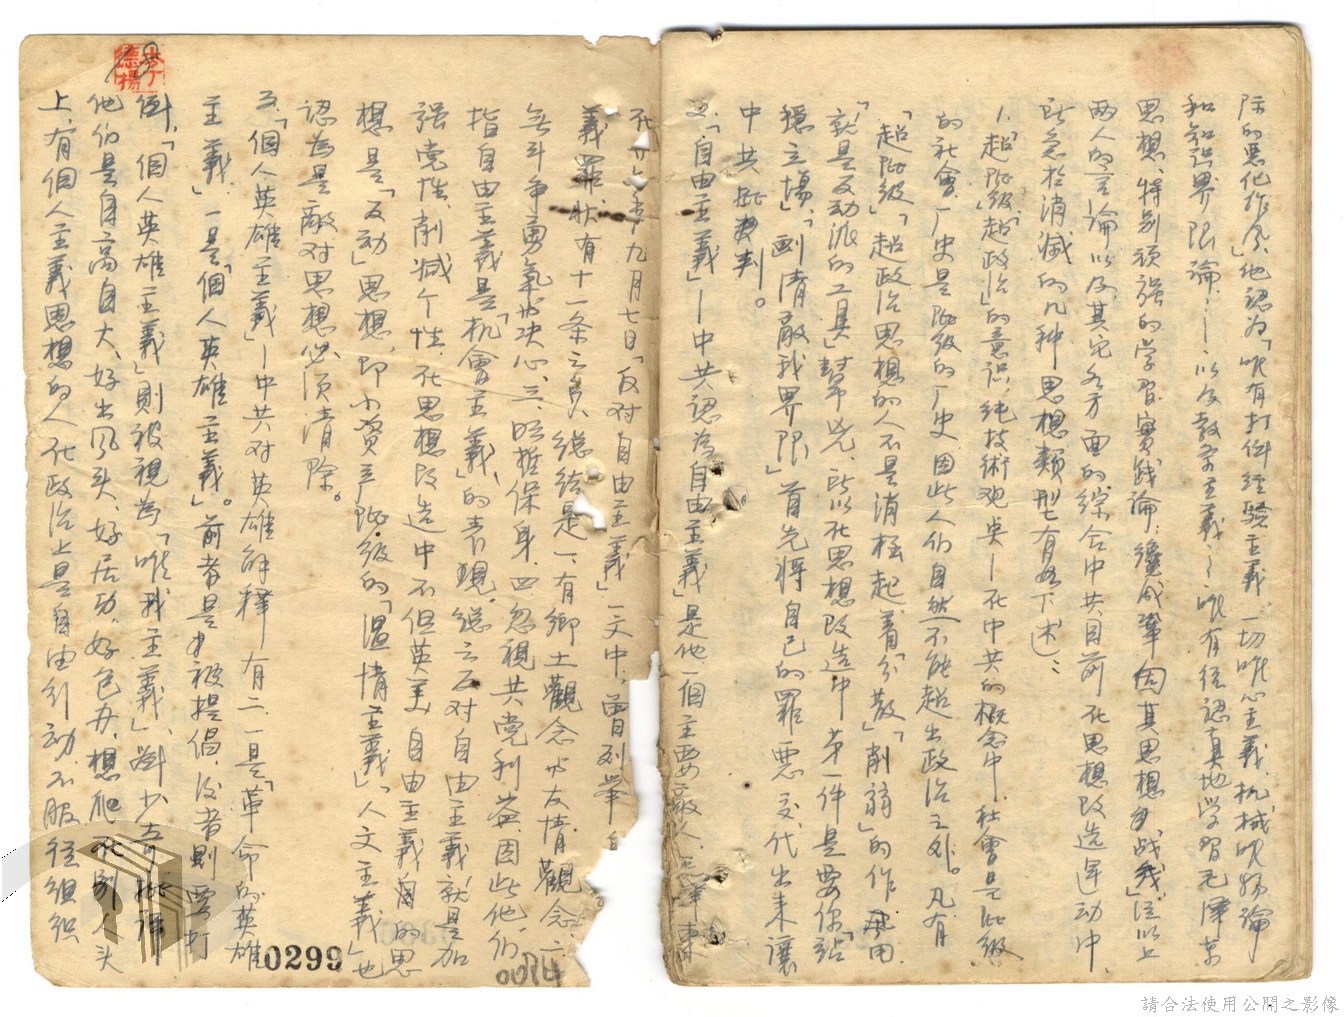 际的恶化作风、他認为「唯有打倒经驗主義、一切唯心主義、机械唯物論
和知識界限論…—以及教条主義…唯有径認真地学習毛泽东
思想、特别頑强的学習實践論、纔成鞏固其思想战线」這以上
两人的言論以及其它各方面的綜合中共目前在思想改造運动中、
所急於消滅的几种思想類型有如下述：
1.「超阶级」「超政治」的意识，純技術观点—在中共的概念中、社會是阶级
的社會、厂史是阶级的厂史、因此人们自然不能超出政治之外。凡有
「超阶级」「超政治思想的人不是消極起着「分散」「削弱」的作用、
「就是反动派的工具」幫兇、所以在思想改造中第一件是要你「站
穩立場」「画清敵我界限」首先将自己的罪悪交代出来讓
中共批判。
2.「自由主義」—中共認為自由主義」是他一個主要敵人、毛泽東
在九月七日「反对自由主義」一文中，曾列举自
義罪状有十一条之多、總结是一、有鄉土觀念与友情觀念、二、
無斗争勇氣与决心、三、明哲保身、四、忽視共党利益、因此他们
指自由主義是「机會主義」的表現、總之反对自由主義就是加
强党性、削减个性、在思想改造中不但英美自由主義的思
想是「反动」思想、即小資产阶级的「温情主義」「人文主義」也
認為是敵对思想必须清除。
3、「個人英雄主義」—中共对英雄解釋有二、一是「革命的英雄
主義」、一是「個人英雄主義」。前者是被提倡、後者則要打
倒、「個人英雄主義」則被視為「唯我主義」、刘少奇批評
他们是自高自大、好出风头、好居功、好包办、想爬在别人头
上、有個人主義思想的人在政治上是自由行动、不服從組織
0299
0084
德楊
請合法使用公開之影像